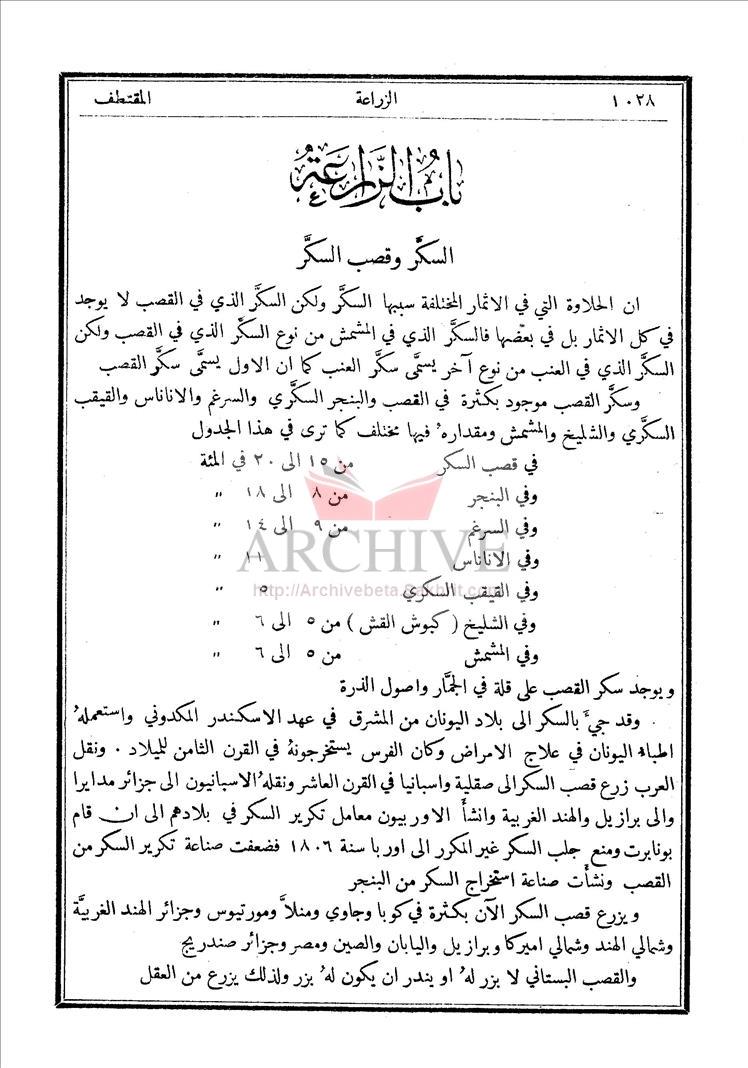 ١٠٢٨ الزراعة المقتطف
باب الزراعة
السكَّر وقصب السكَّر
ان الحلاوة التي في الاثمار المختلفة سببها السكَّر ولكن السكَّر الذي في القصب لا يوجد
في كل الاثمار بل في بعضها فالسكَّر الذي في المشمش من نوع السكَّر الذي في القصب ولكن
السكَّر الذي في العنب من نوع آخر يسمَّى سكَّر العنب كما ان الاول يسمَّى سكَّر القصب
وسكَّر القصب موجود بكثرة في القصب والبنجر السكَّري والسرغم والاناناس والقيقب
السكَّري والشليخ والمشمش ومقداره ُ فيها مختلف كما ترى في هذا الجدول
في قصب السكر من ١٥ الى ٢٠ في المئة
وفي البنجر من ٨ الى ١٨ "
وفي السرغم من ٩ الى ١٤ "
وفي الاناناس ١١ "
وفي القيقب السكري ٥ "
وفي الشليخ ( كبوش القش ) من ٥ الى ٦ "
وفي المشمش من ٥ الى ٦ "
ARCHIVE
http://Archivebeta.Sakhrit.com
ويوجد سكر القصب على قلة في الجمَّار واصول الذرة
وقد جيَّ بالسكر الى بلاد اليونان من المشرق في عهد الاسكندر المكدوني واستعملهُ
اطباء اليونان في علاج الامراض وكان الفرس يستخرجونهُ في القرن الثامن للميلاد . ونقل
العرب زرع قصب السكر الى صقلية واسبانيا في القرن العاشر ونقلهُ الاسبانيون الى جزائر مدايرا
والى برازيل والهند الغربية وانشأ الاوربيون معامل تكرير السكر في بلادهم الى ان قام
بونابرت ومنع جلب السكر غير المكرر الى اوربا سنة ١٨٠٦ فضعفت صناعة تكرير السكر من
القصب ونشأت صناعة استخراج السكر من البنجر
ويزرع قصب السكر الآن بكثرة في كوبا وجاوي ومنلاَّ ومورتيوس وجزائر الهند الغربيَّة
وشمالي الهند وشمالي اميركا وبرازيل واليابان والصين ومصر وجزائر صندريج
والقصب البستاني لا بزر لهُ او يندر ان يكون لهُ بزر ولذلك يزرع من العقل